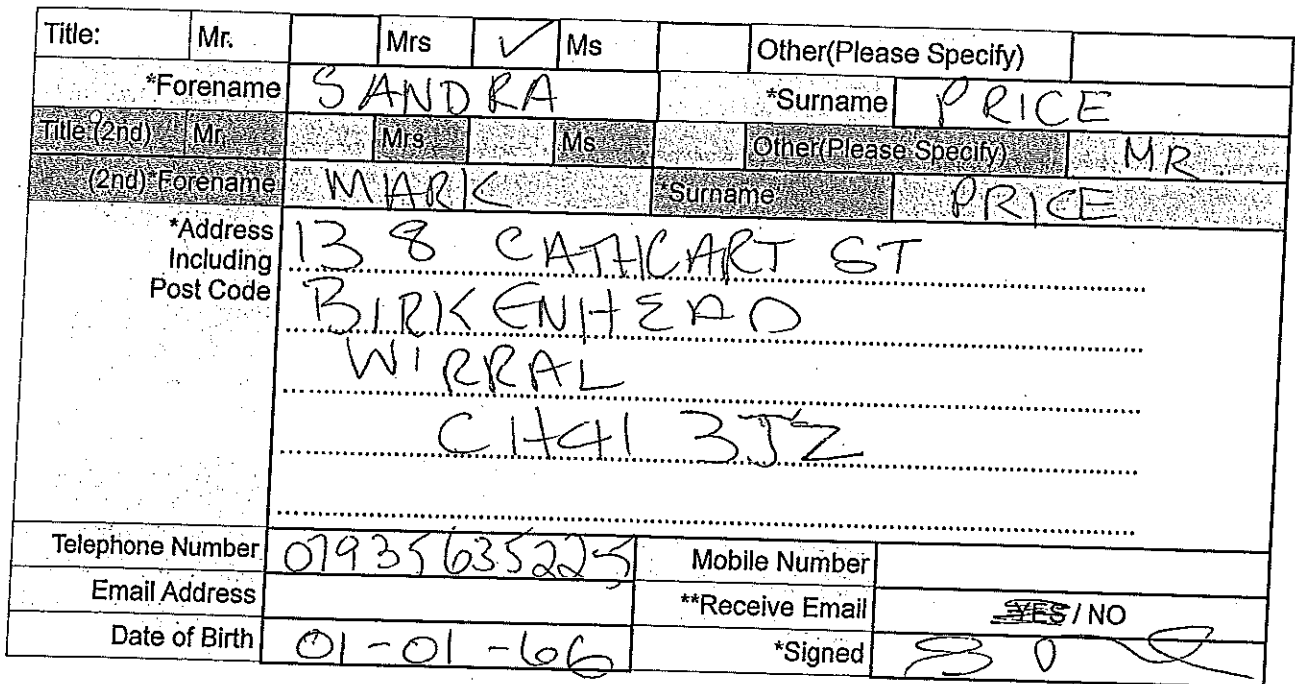 Title: Mr. Mrs ✓ Ms Other(Please Specify)
*Forename SANDRA *Surname PRICE
Title (2nd) Mr. Mrs Ms Other(Please Specify) MR
(2nd)*Forename MARK *Surname PRICE
*Address Including Post Code
138 CATHCART ST
BIRKENHEAD
WIRRAL
CH41 3JZ
Telephone Number 07935635225 Mobile Number
Email Address **Receive Email YES / NO
Date of Birth 01-01-66 *Signed